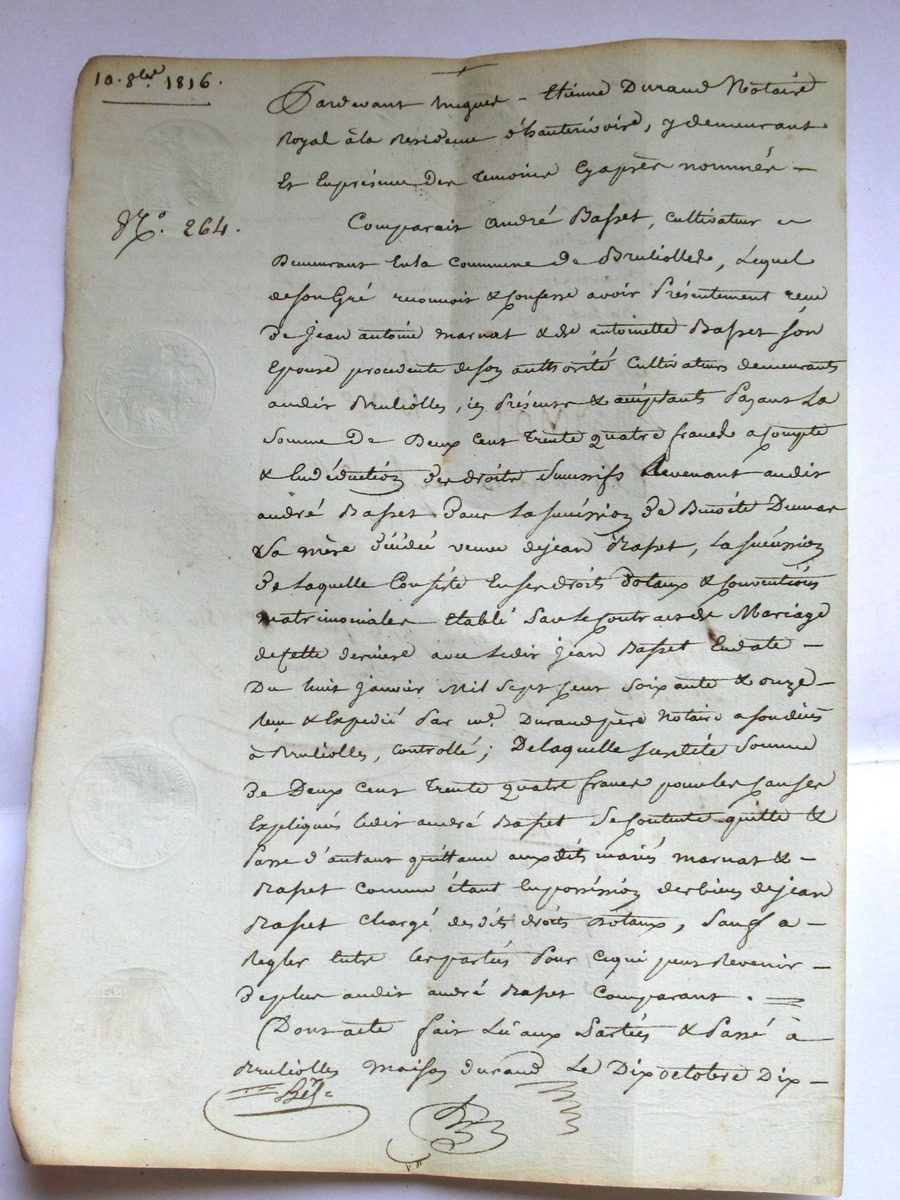 10. 8bre. 1816.
Pardevant Mtre Etienne Durand Notaire
Royal à la Residence d'hauterivoire, y demeurant
Et Enprésence Des Temoins Cyaprès nommés —
N°. 264.
Comparait André Basset, cultivateur
Demeurant Enla Commune de Brulliolles, Lequel
deson Gré reconnoit & Confesse avoir Présentement reçu
De Jean antoine Marnat & de antoinette Basset son
Epouse procedente deson authorité Cultivateurs demeurants
audit Brulliolles, ici Présents & acceptants Payant La
Somme De Deux Cent trente quatre francs acompte
& Endéduction Des droits Successifs Revenant audit
andré Basset Dans La succession De Benoite
Sa mère Décédée veuve dejean Basset, La succession
De Laquelle Consiste Ensesdroits Dotaux & Conventions
matrimoniales Etabli Par le Contract de Mariage
decette derniere avec Ledit Jean Basset Endate —
Du huit Janvier Mil Sept Cent Soixante & onze —
Reçu & Expedié Par me. Durand père Notaire
à Brulliolles, controllé; Delaquelle susditte Somme
De Deux Cent trente quatre francs pour les Causes
Expliqués Ledit andré Basset Se Contente quitte &
Passe d'autant quittance auxdits mariés Marnat & —
Basset Comme étant Enpossession des biens dejean
Basset Chargé desdits droits Dotaux, Sauf a —
Regler Entre les parties Pour Cequi peut Revenir —
Deplus audit andré Basset Comparant.
(Dont acte fait Lû aux Parties & Passé à
Brulliolles Maison durand Le Dix octobre Dix —